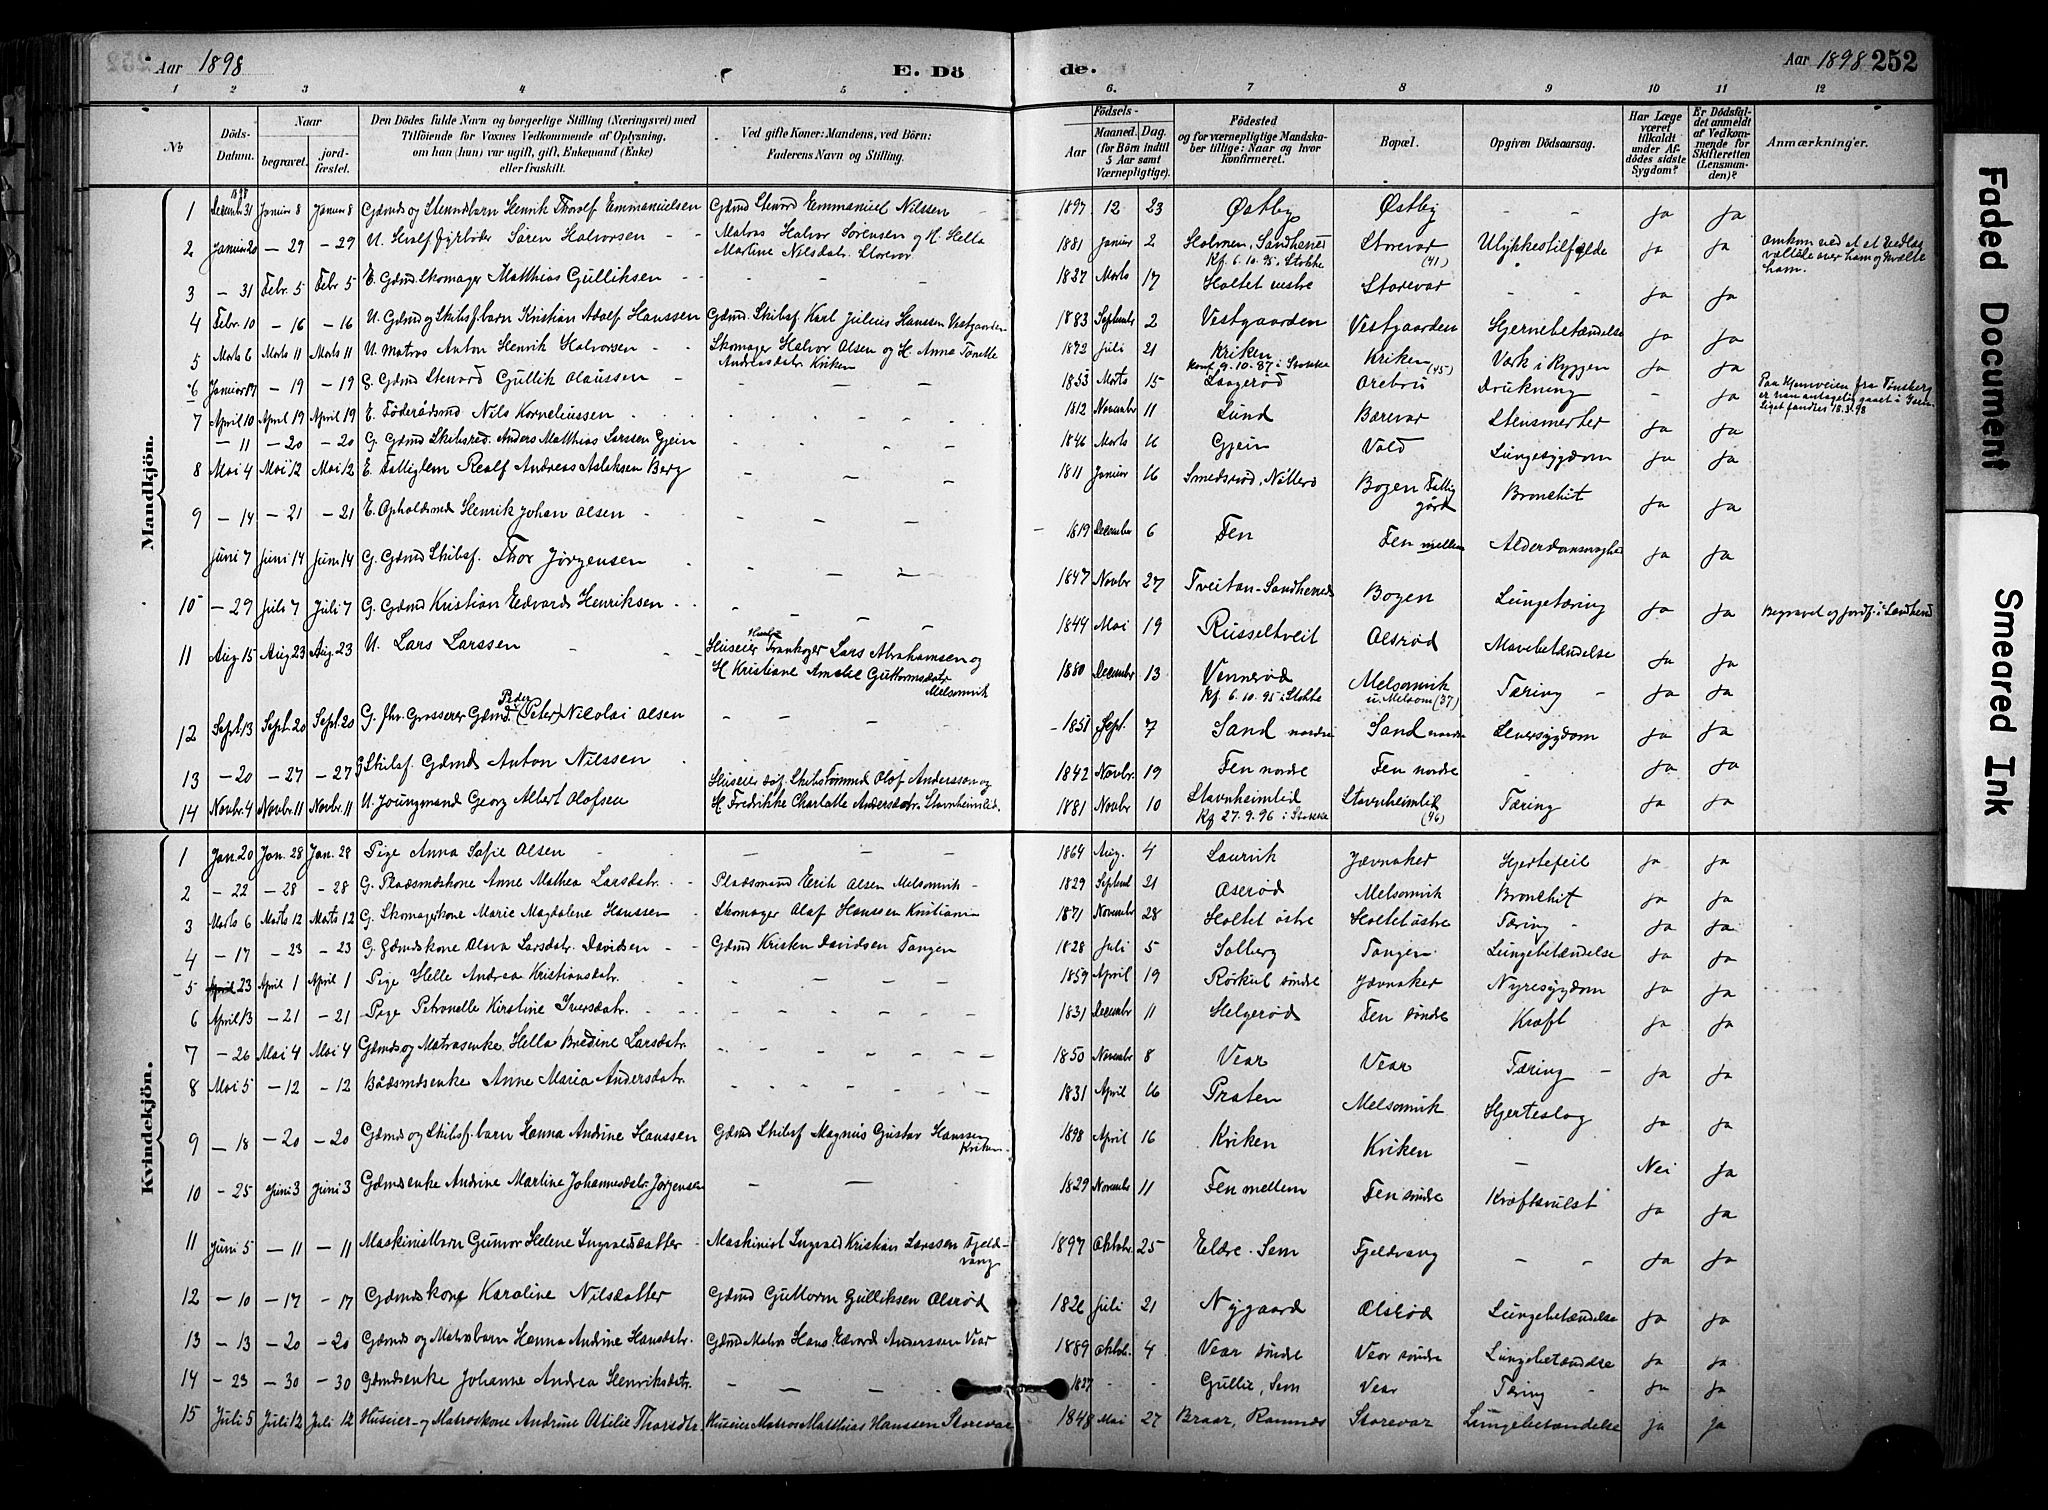 Aar 1898 E. Döde. Aar 1898 252
1 2 3 4 5 6. 7 8 9 10 11 12
No Döds-Datum. Naar begravet. jordfæstet. Den Dödes fulde Navn og borgerlige Stilling (Næringsvei) med Tilföiende for Voxnes Vedkommende af Oplysning, om han (hun) var ugift, gift, Enkemand (Enke) eller fraskilt. Ved gifte Koner: Mandens, ved Börn: Faderens Navn og Stilling. Födsels- Aar Maaned. Dag. (for Börn indtil 5 Aar samt Værnepligtige). Födested og for værnepligtige Mandskaber tillige: Naar og hvor konfirmeret. Bopæl. Opgiven Dödsaarsag. Har Læge været tilkaldt under Afdödes sidste Sygdom? Er Dödsfaldet anmeldt af Vedkommende for Skifteretten (Lensmanden)? Anmærkninger.
Mandkjön.
1 Decembr 31 Januar 8 Januar 8 Gdmd og Stuerdbarn Henrik Thorolf Emmanuelsen Gdmd Stuerd Emmanuel Nilssen 1897 12 23 Østby Østby - - Ja Ja
2 Januar 20 - 29 - 29 U. Søren Halvorsen Matros Halvor Sørensen og H. Hella Martine Nilsdatr. Storevar 1881 Januar 2 Holmen, Sandhered Kf. 6.10.95 i Stokke Storevar (41) Ulykkestilfælde Ja Ja Omkom ved at et Vedlas væltede over ham og kvalte ham.
3 - 31 Febr. 5 Febr. 5 E. Gdmd Skomager Matthias Gulliksen - - - 1837 Marts 17 Holtet vestre Storevar - - Ja Ja
4 Febr. 10 - 16 - 16 U. Gdmd og Skibsf. barn Kristian Adolf Hanssen Gdmd. Skibsf. Karl Julius Hanssen Vestgaarden 1883 Septembr 2 Vestgaarden Vestgaarden Hjernebetændelse Ja Ja
5 Marts 6 Marts 11 Marts 11 U. Matros Anton Henrik Halvorsen Skomager Halvor Olsen og H. Anna Tonette Andreasdatr Kriken 1872 Juli 21 Kriken Konf. 9.10.87 i Stokke Kriken (45) Værk i Ryggen Ja Ja
6 Januar 17 - 19 - 19 G. Gdmd Stuerd Gullik Olaussen - - 1853 Marts 15 Langerød Orebru Drukning - Ja Paa Hjemveien fra Tønsberg er han antagelig gaaet i Liget fandtes 18.3.98
7 April 10 April 19 April 19 E. Föderådsmd Nils Korneliussen - - - 1812 Novembr 11 Lund Bærevar Stensmerter Ja Ja
- 11 - 20 - 20 G. Gdmd Skibsred. Anders Matthias Larssen Gjein - - - 1846 Marts 16 Gjein Vold Lungesygdom Ja Ja
8 Mai 4 Mai 12 Mai 12 E. Fattiglem Realf Andreas Asleksen Berg - - - 1811 Januar 16 Smedsrød, Nøtterø Bogen Fattiggård Bronchit Ja Ja
9 - 14 - 21 - 21 E. Opholdsmd Henrik Johan Olsen - - - 1819 Decembr 6 Fen Fen mellem Alderdomssvaghed Ja Ja
Juni 7 Juni 14 Juni 14 G. Gdmd Skibsf. Thor Jørgensen - - - 1847 Novbr 27 Tveitan - Sandhered Bogen Lungetæring Ja Ja Begravet og jordf. i Sandhered
10 - 29 Juli 7 Juli 7 G. Gdmd Kristian Edvard Henriksen - - - 1844 Mai 19 Russeltveit Olsrød Mavebetændelse Ja Ja
11 Aug 15 Aug 23 Aug 23 U. Lars Larssen - - Huseier Hvalf. Trankoger Lars Abrahamsen og H Kristiane Amalie Guttormsdatr Melsomvik 1880 Decembr 13 Vennerød Kf. 6.10.95 i Stokke Melsomvik u. Melsom (37) Tæring - Ja Ja
12 Sept 13 Sept. 20 Sept. 20 G. fhv. Grosserer Gdmd. Peder (Peter) Nicolai Olsen - - - 1851 Sept. 7 Sand nordre Sand nordre Leversygdom Ja Ja
13 - 20 - 27 - 27 G Skibsf. Gdmd Anton Nilssen - - 1842 Novbr. 19 Fen nordre Fen nordre - Ja Ja
14 Novbr. 4 Novbr. 11 Novbr. 11 U. Joungmand Georg Albert Olofsen Huseier Skibstømmd Olof Anderssen og H Fredrikke Charlotte Andersdatr. Stavnheimlid. 1881 Novbr 10 Stavnheimlid Kf 27.9.96 i Stokke Stavnheimlid (46) Tæring Ja Ja
Kvindekjön.
1 Jan. 20 Jan. 28 Jan. 28 Pige Anna Sofie Olsen - - - 1864 Aug. 4 Laurvik Jævnaker Hjertefeil Ja Ja
2 - 22 - 28 - 28 G. Pladsmdskone Anne Mathea Larsdatr. Pladsmand Erik Olsen Melsomvik - 1829 Septembr 21 Aserød Melsomvik Bronchit Ja Ja
3 Marts 6 Marts 12 Marts 12 G. Skomagerkone Marie Magdalene Hanssen - Skomager Olaf Hanssen Kristiania 1871 Novembr 28 Holtet östre Holtet östre Tæring - Ja Ja
4 - 17 - 23 - 23 G. Gdmdskone Olava Larsdatr. Davidsen Gdmd Kristen Davidsen Tangen 1828 Juli 5 Solberg Tangen. Lungebetændelse Ja Ja
5 23 April 1 April 1 Pige Helle Andrea Kristiansdatr. - - - 1859 April 19 Rørkul søndre Jævnaker Nyresygdom Ja Ja
6 April 13 - 21 - 21 Pige Petronelle Kirstine Iversdatr. - - - 1831 Decembr 11 Helgerød Fen søndre Kræft Ja Ja
7 - 26 Mai 4 Mai 4 Gdmds og Matrosenke Hella Bredine Larsdatr. - - - 1850 Novembr 8 Vear Vear Tæring - Ja Ja
8 Mai 5 - 12 - 12 Bådsmdsenke Anne Maria Andersdatr. - - - 1831 April 16 Præsten Melsomvik Hjerteslag Ja Ja
9 - 18 - 20 - 20 Gdmds og Skibsf. barn Hanna Andrine Hanssen Gdmd Skibsf Magnus Gustav Hanssen Kriken 1898 April 16 Kriken Kriken - Nei Ja
10 - 25 Juni 3 Juni 3 Gdmdsenke Andrine Martine Johannesdatr. Jørgensen - - - 1829 Novembr 11 Fen mellem Fen søndre Kræftsvulst Ja Ja
11 Juni 5 - 11 - 11 Maskinistbarn Gunvor Helene Ingvaldsdatter Maskinist Ingvald Kristian Larssen Fjeldvang 1897 Oktobr. 25 Eldre. Sem Fjeldvang - - Ja Ja
12 - 10 - 17 - 17 Gdmdskone Karoline Nilsdatter Gdmd Guttorm Gulliksen Olsrød Juli 21 Nygaard Olsrød Lungebetændelse Ja Ja
13 - 13 - 20 - 20 Gdmds og Matrosbarn Hanna Andrine Hansdatr. Gdmd Matros Hans Edvard Anderssen Vear 1889 Oktob. 4 Vear søndre Vear søndre Lungebetændelse Ja Ja
14 - 23 - 30 - 30 Gdmdsenke Johanne Andrea Henriksdatr. - - - 1827 - - Gullie, Sem Vear Tæring - Ja Ja
15 Juli 5 Juli 12 Juli 12 Huseier- og Matroskone Andrine Otilie Thorsdtr. Huseier Matros Matthias Hanssen Storevar 1848 Mai 27 Braar, Ramnes Storevar Lungebetændelse Ja Ja
Faded Document
Smeared Ink